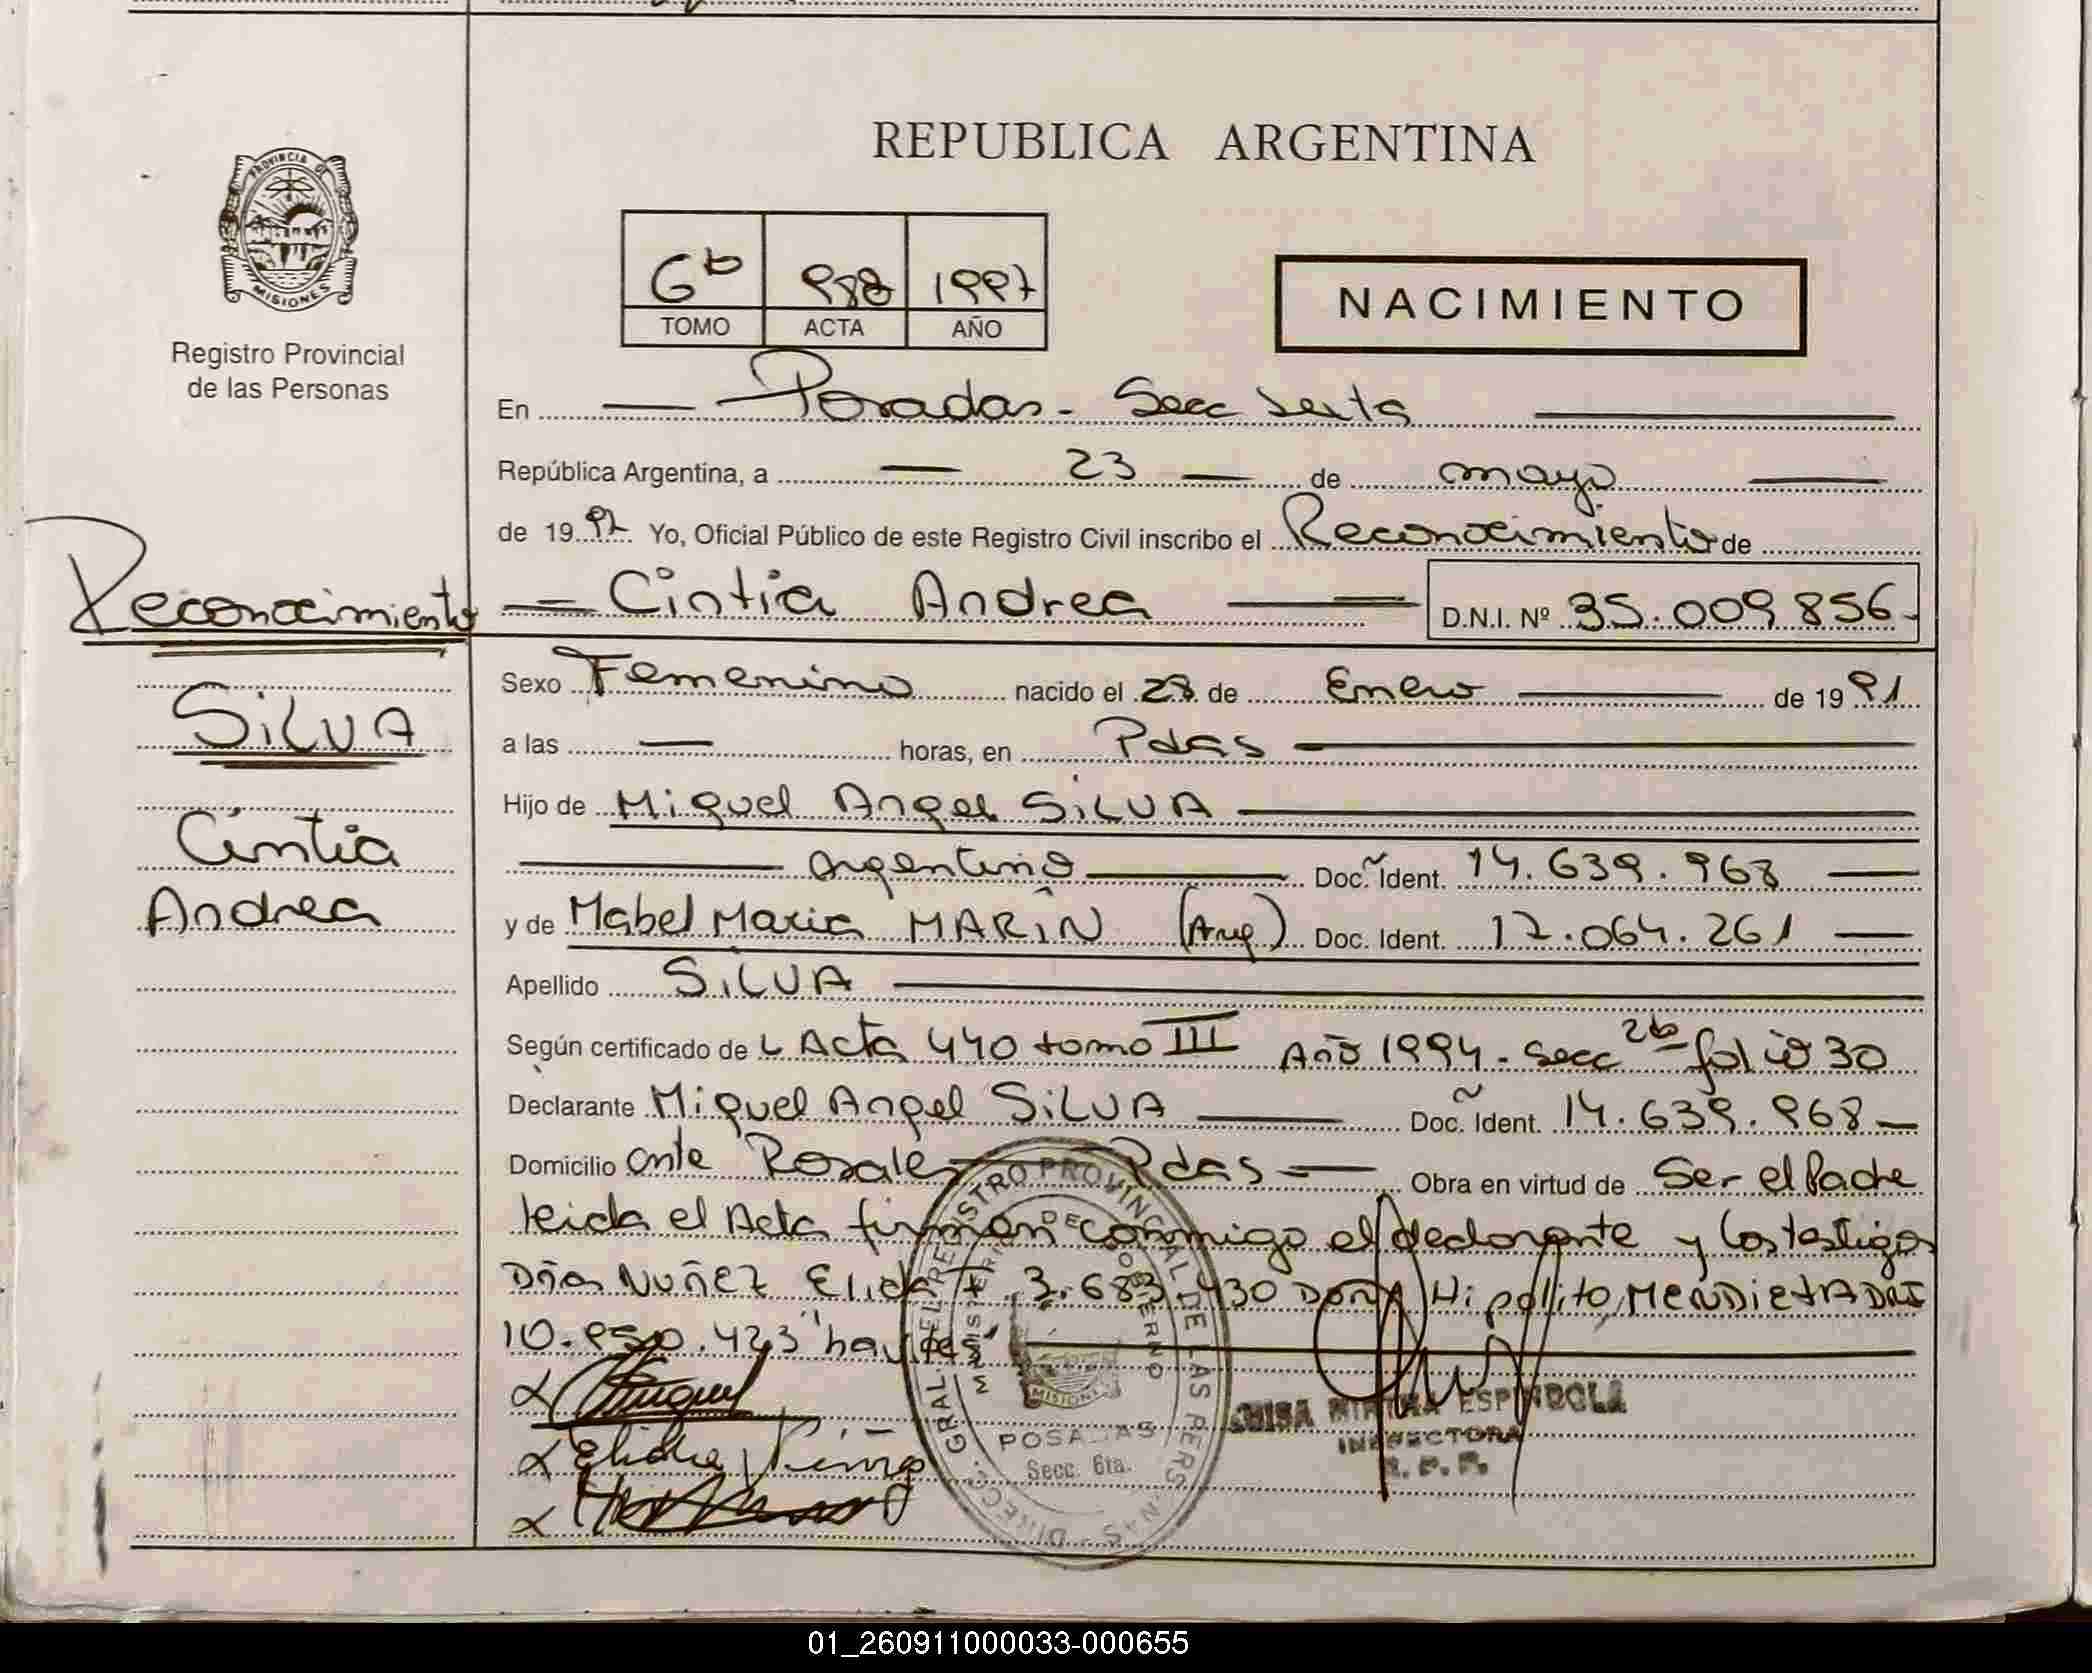 REPUBLICA ARGENTINA
PROVINCIA DE
MISIONES
Registro Provincial
de las Personas
6ta 988 1997
TOMO ACTA AÑO
NACIMIENTO
En Posadas - Secc Sexta
República Argentina, a 23 de mayo
de 1997 Yo, Oficial Público de este Registro Civil inscribo el Reconocimiento de
Cintia Andrea D.N.I. Nº 35.009.856-
Reconocimiento
SILVA
Cintia
Andrea
Sexo Femenino nacido el 28 de Enero de 1991
a las — horas, en Pdas
Hijo de Miguel Angel SILVA
argentino Doc. Ident. 14.639.968
y de Mabel Maria MARIN (Arg) Doc. Ident. 17.064.261
Apellido SILVA
Según certificado de Acta 440 tomo III Año 1994 - Secc 2da folio 30
Declarante Miguel Angel SILVA Doc. Ident. 14.639.968
Domicilio ante Rosales Pdas Obra en virtud de Ser el Padre
leida el Acta firman conmigo el declarante y los testigos
Dña NUÑEZ Elida 3.683.430 Hipolito MENDIETA DNI
10.950.423
DIRECC. GRAL. DEL REGISTRO PROVINCIAL DE LAS PERSONAS
MINISTERIO DE GOBIERNO
MISIONES
POSADAS
Secc. 6ta.
LUISA MIRTHA ESPINDOLA
INSPECTORA
R. P. P.
01_260911000033-000655